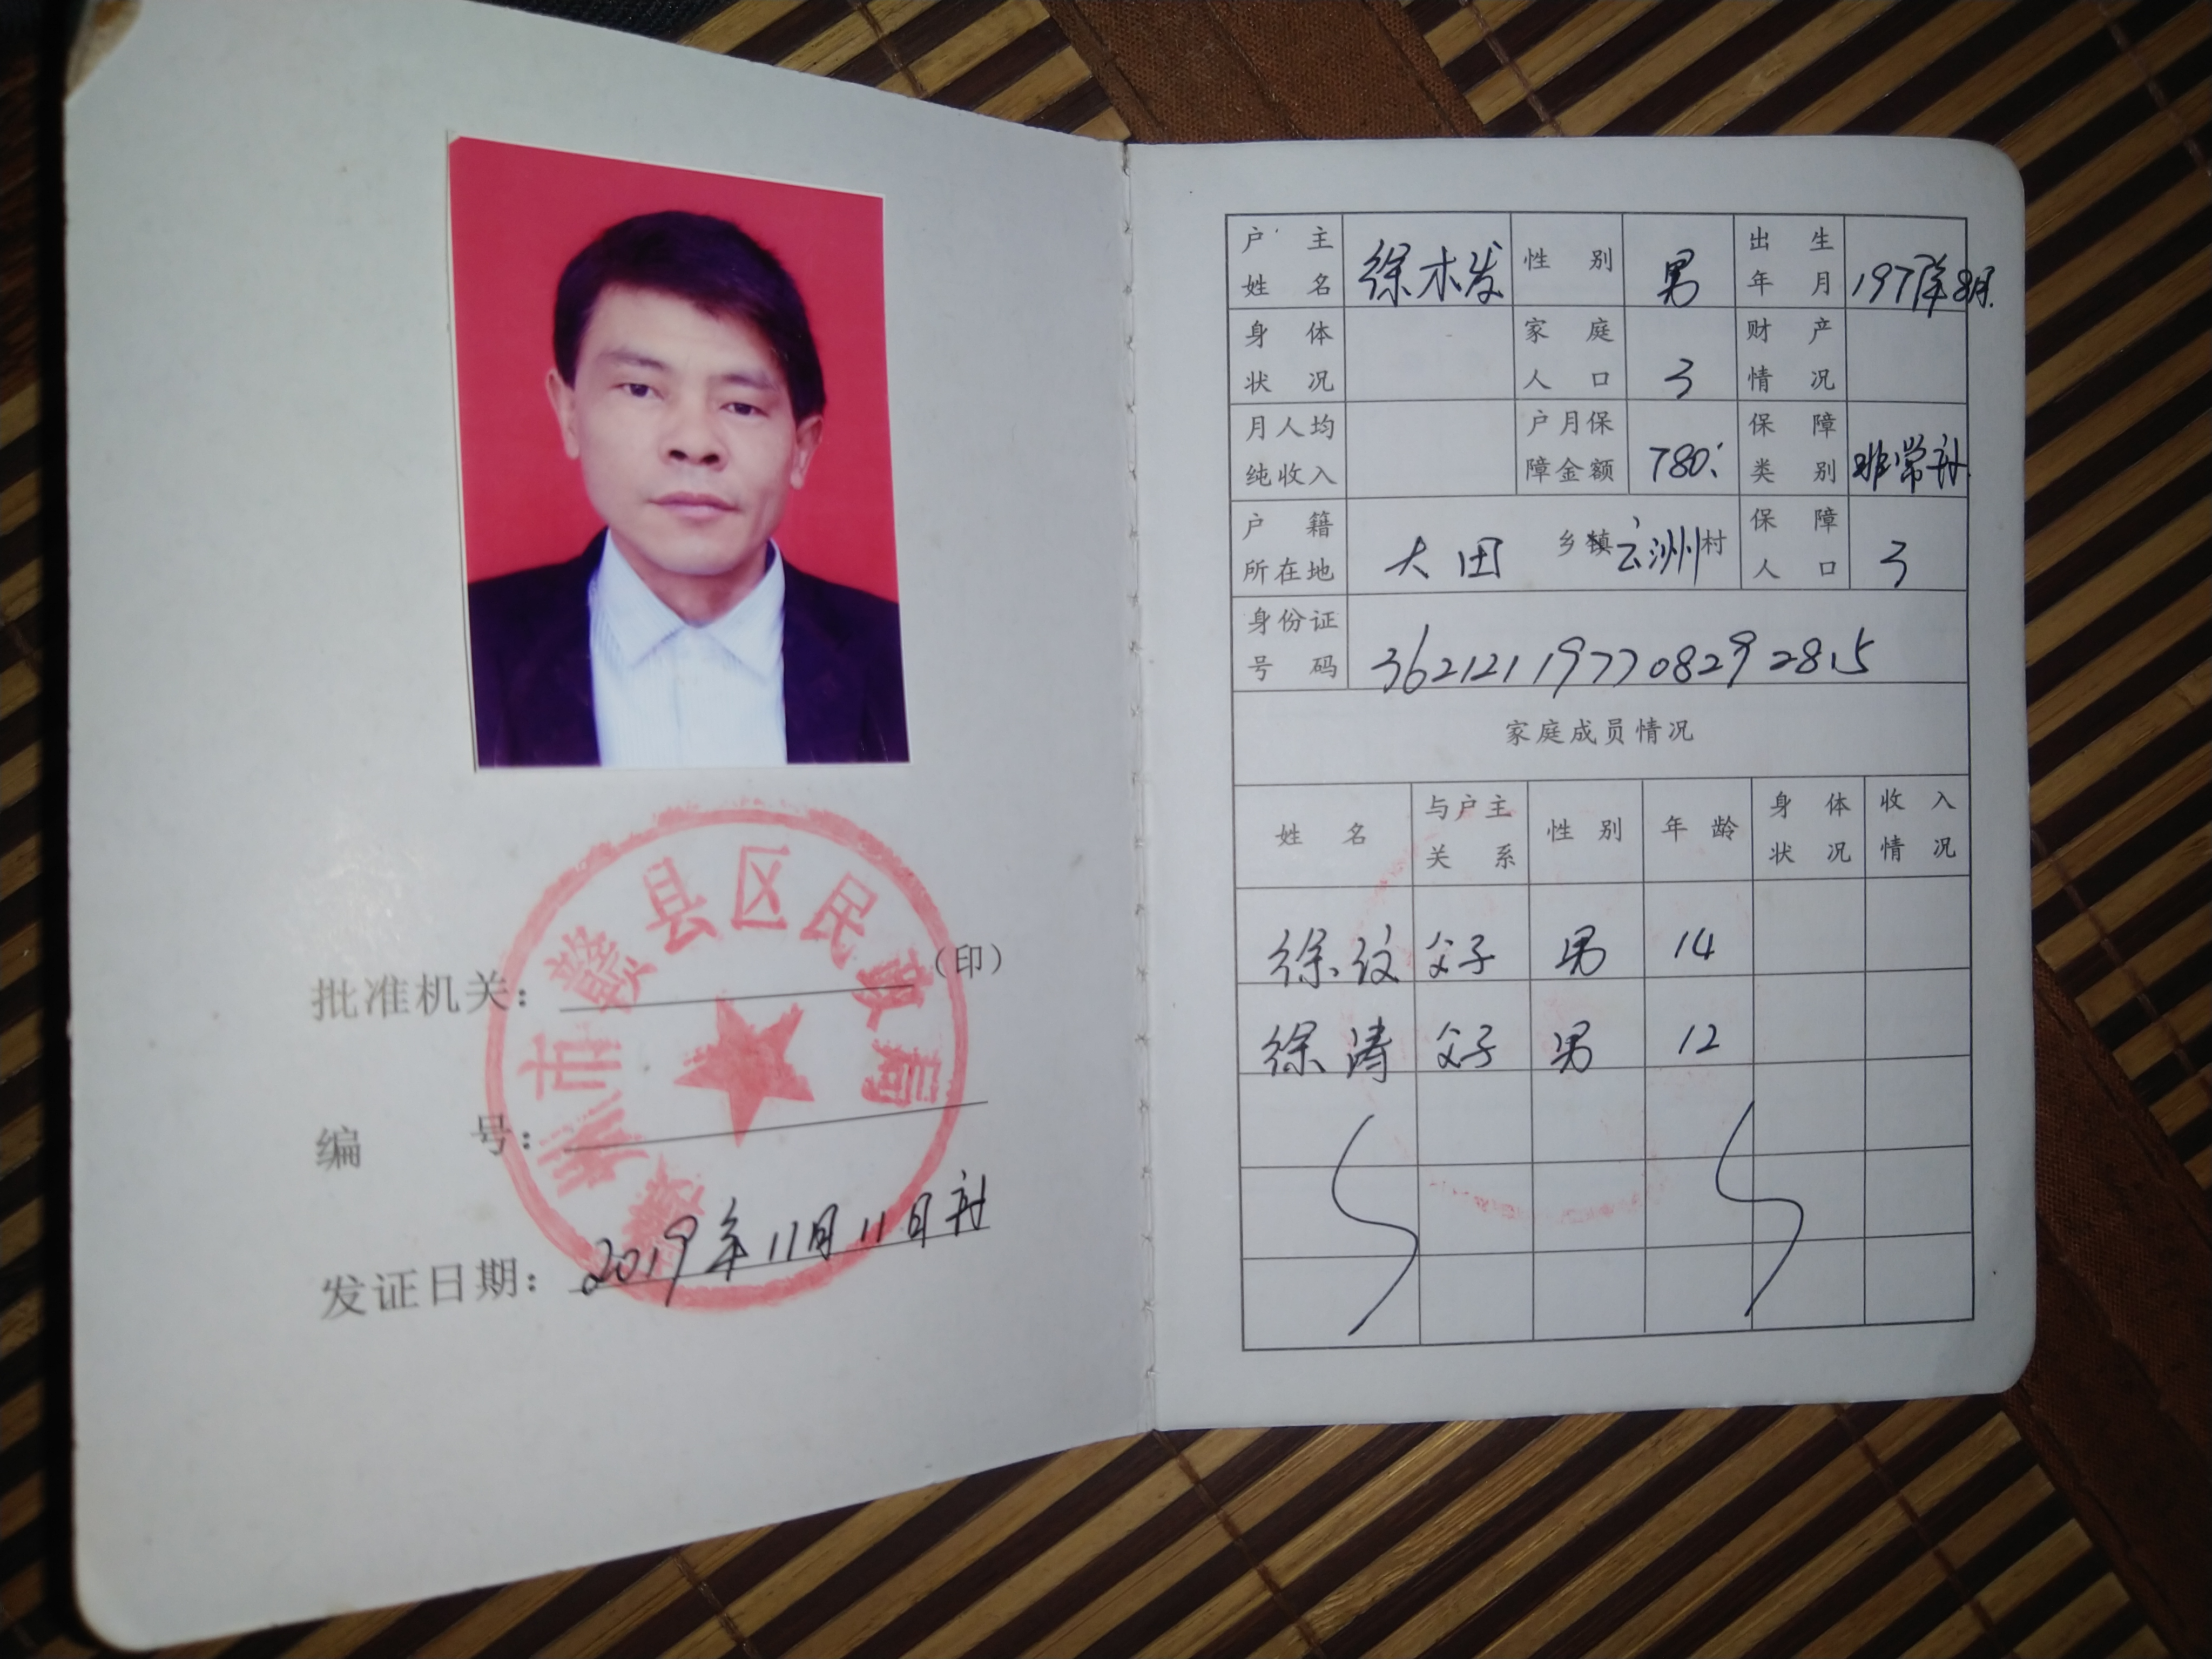 赣州市赣县区民政局
批准机关：（印）
编 号：
发证日期：2019年11月11日补
户主姓名 徐木发 性别 男 出生年月 1977年8月
身体状况 家庭人口 3 财产情况
月人均纯收入 户月保障金额 780 保障类别 非常补
户籍所在地 大田 乡镇 云洲 村 保障人口 3
身份证号码 362121197708292815
家庭成员情况
姓名 与户主关系 性别 年龄 身体状况 收入情况
徐 父子 男 14
徐涛 父子 男 12